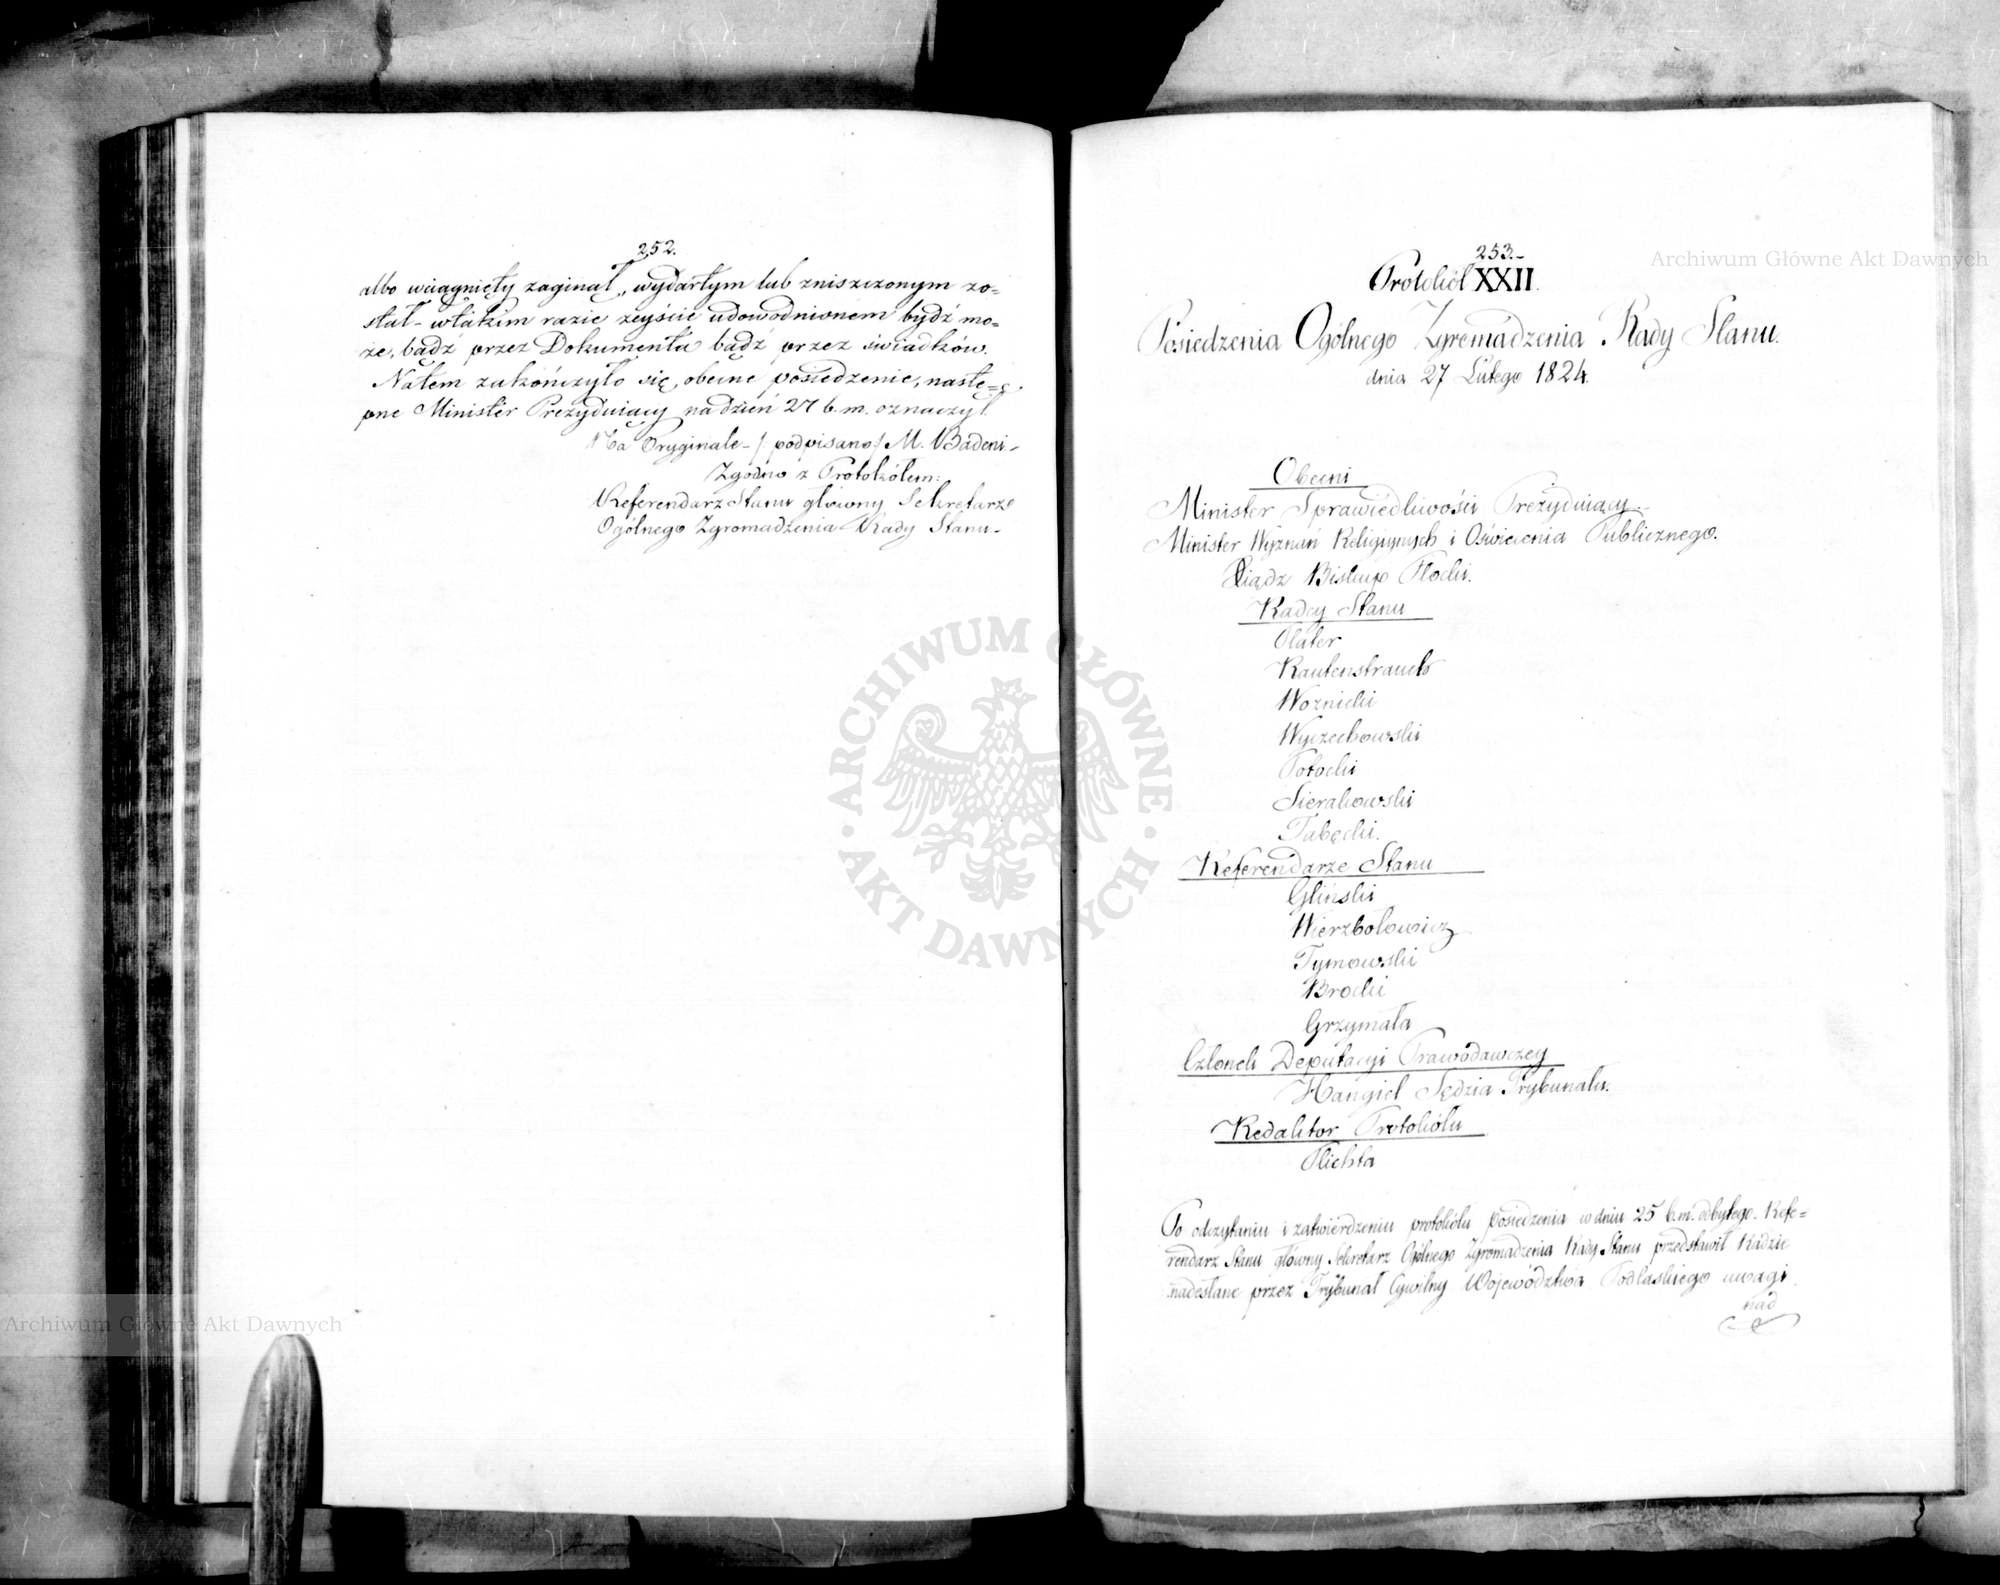 252.
albo wciągnięty zaginął, wydartym lub zniszczonym zo=
stał - wtakim razie zeyście udowodnionem bydź mo=
że, bądź przez Dokumenta bądź przez świadków.
Natem zakończyło się, obecne posiedzenie, nastę=
pne Minister Prezyduiący na dzień 27 b. m. oznaczył.
Na Oryginale - /: podpisano :/ M. Badeni -
Zgodno z Protokółem:
Referendarz Stanu główny Sekretarz
Ogólnego Zgromadzenia Rady Stanu -
253.-
Protokół XXII.
Posiedzenia Ogólnego Zgromadzenia Rady Stanu.
dnia 27 Lutego 1824.
Obecni
Minister Sprawiedliwości Prezyduiący
Minister Wyznań Religiynych i Oświecenia Publicznego.
Xiądz Biskup Płocki.
Radcy Stanu
Plater
Rautenstrauch
Woznicki
Wyczechowski
Potocki
Sierakowski
Tabęcki.
Referendarze Stanu
Gliński
Wierzbołowicz
Tymowski
Brocki
Grzymała
Członek Deputacyi Prawodawczey
Hangiel Sędzia Trybunału.
Redaktor Protokółu
Plichta
Po odczytaniu i zatwierdzeniu protokółu posiedzenia w dniu 25 b. m. odbytego. Refe=
rendarz Stanu główny Sekretarz Ogólnego Zgromadzenia Rady Stanu przedstawił Radzie
nadesłane przez Trybunał Cywilny Województwa Podlaskiego uwagi
nad
Archiwum Główne Akt Dawnych
ARCHIWUM GŁÓWNE
AKT DAWNYCH
Archiwum Główne Akt Dawnych